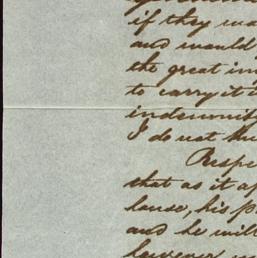 if they wa
and would
the great in
to carry it i
indemnity
I do not the
Respe
that as it ap
lause, his p
and he will
however